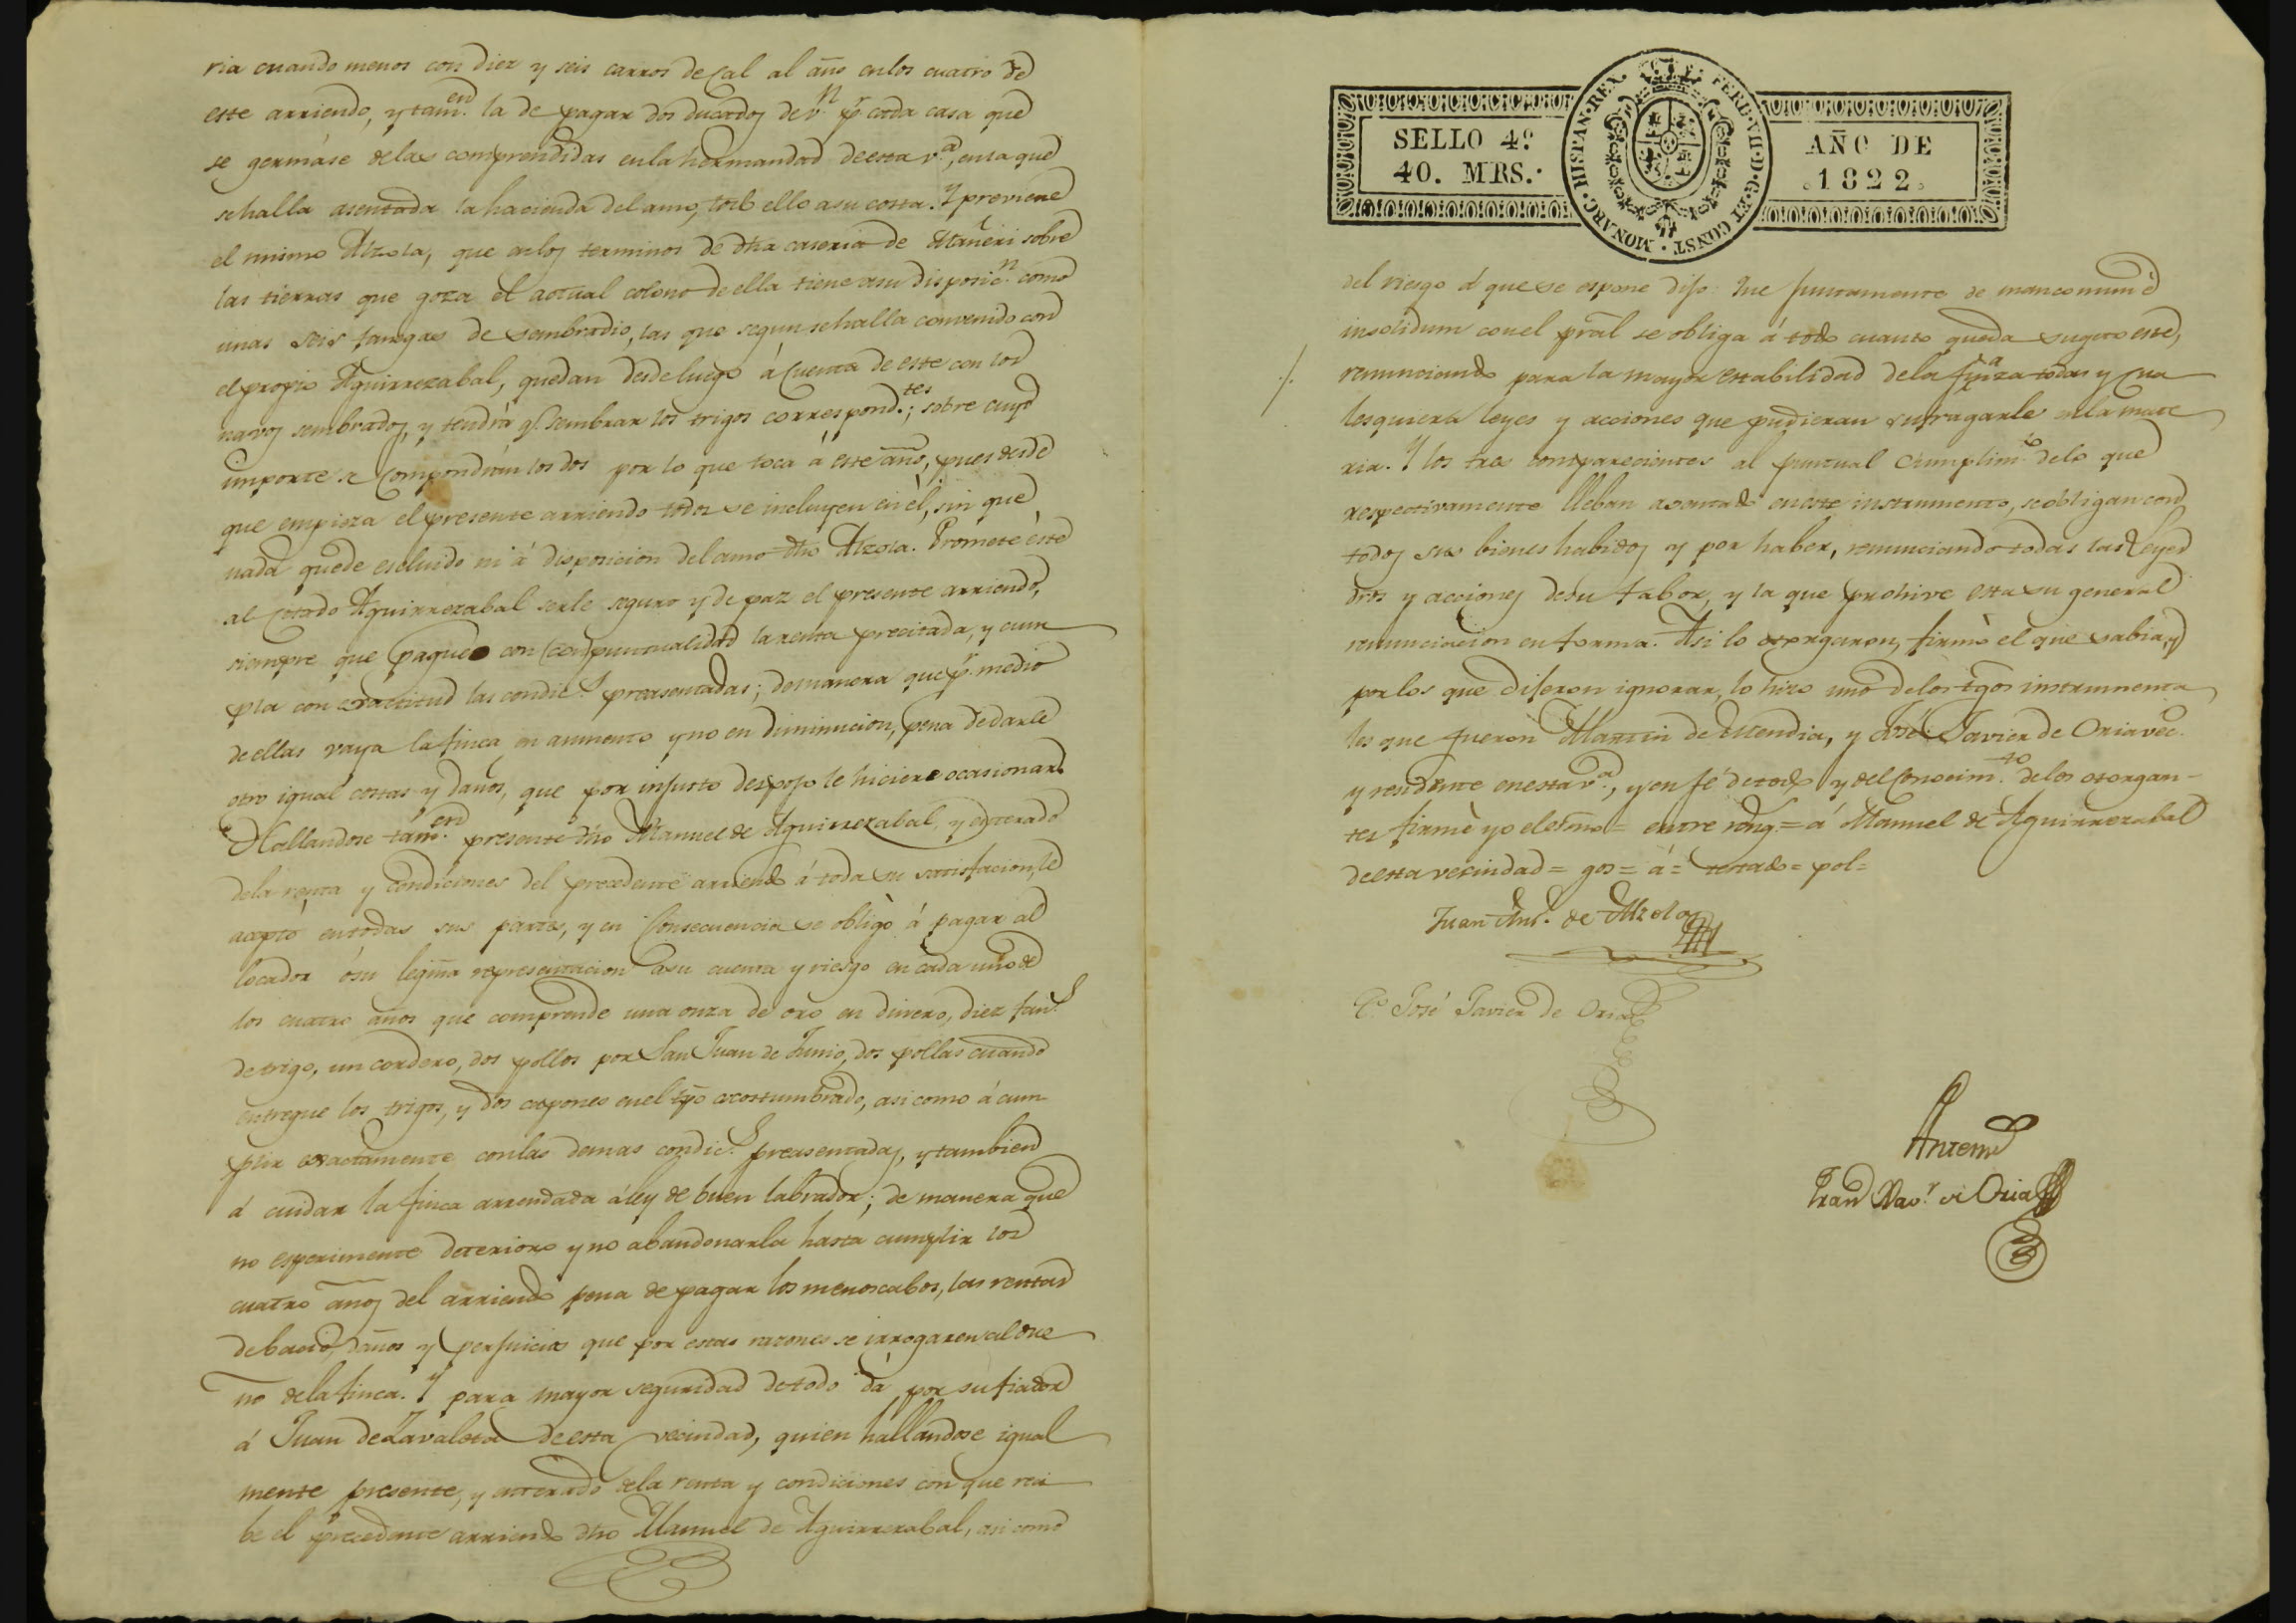 ria cuando menos con diez y seis carros de Cal al año en los cuatro de
este arriendo, y tam.en la de pagar dos ducados de v.n p.r cada casa que
se germáse de las comprendidas en la hermandad de esta v.a, en la que
se halla asentada la hacienda del amo, todo ello a su costa. Y previene
el mismo Alzola, que en los terminos de dha caseria de Mañeri sobre
las tierras que goza el actual colono de ella tiene a su disposic.n como
unas seis fanegas de sembradio, las que segun se halla convenido con
el propio Aguirrezabal, quedan desde luego á Cuenta de este con los
navos sembrados, y tendrá q.e sembrar los trigos correspond.tes; sobre cuyo
importe se Compondrán los dos por lo que toca á este año, pues desde
que empieza el presente arriendo todos se incluyen en èl, sin que
nada quede escluido ni á disposicion del amo dho Alzola. Promete èste
al Citado Aguirrezabal serle seguro y de paz el presente arriendo,
siempre que pague con (con) puntualidad la renta precitada, y cum
pla con exactitud las condic.s preasentadas; de manera que p.r medio
de ellas vaya la finca en aumento y no en diminucion, pena de darle
otro igual costas y daños, que por injusto despojo le hiciere ocasionar.
Hallandose tam.en presente dho Manuel de Aguirrezabal, y enterado
de la renta y condiciones del precedente arriendo á toda su satisfacion, le
aceptó en todas sus partes, y en Consecuencia se obligò á pagar al
locador ó su legma representacion á su cuenta y riesgo en cada uno de
los cuatro años que comprende una onza de oro en dinero, diez fan.s
de trigo, un cordero, dos pollos por San Juan de Junio, dos pollas cuando
entregue los trigos, y dos capones en el tpo acostumbrado, asi como á cum
plir exactamente con las demas condic.s preasentadas, y tambien
á cuidar la finca arrendada á ley de buen labrador; de manera que
no esperimente deterioro y no abandonarla hasta cumplir los
cuatro años del arriendo pena de pagar los menoscabos, las rentas
de bacio, daños y perjuicios que por estas razones se irrogaren al due
ño de la finca. Y para mayor seguridad de todo dá por su fiador
á Juan de Zavaleta de esta vecindad, quien hallandose igual
mente presente, y enterado de la renta y condiciones con que reci
be el precedente arriendo dho Manuel de Aguirrezabal, asi como
SELLO 4º
40. MRS.
HISPAN. REX. FERD. VII. D. G. ET CONST. MONARC.
AÑO DE
1822.
del riesgo á que se espone dijo: Que juntamente de mancomun é
insolidum con el pral se obliga á todo cuanto queda sugeto este,
renunciando para la mayor estabilidad de la fianza todas y cua
lesquiera leyes y acciones que pudieran sufragarle en la mate
ria. Y los tres comparecientes al puntual Cumplim.to de lo que
respectivamente lleban asentado en este instrumento, se obligan con
todos sus bienes habidos y por haber, renunciando todas las Leyes
dros y acciones de su fabor, y la que prohive esta su general
renunciacion en forma. Asi lo otorgaron, firmò el que sabia, y
por los que dijeron ignorar, lo hizo uno de los tgos instrumenta
les que fueron Martin de Mendia, y José Javier de Oria vec.o
y residente en esta v.a, y en fé de todo y del Conocim.to de los otorgan-
tes firmè yo el esno = entre rengs = á Manuel de Aguirrezabal
de esta vecindad = gos = á = testado = pol =
Juan Ant.o de Alzola
T.o José Javier de Oria
Antemi
Fran Xav.r de Oria